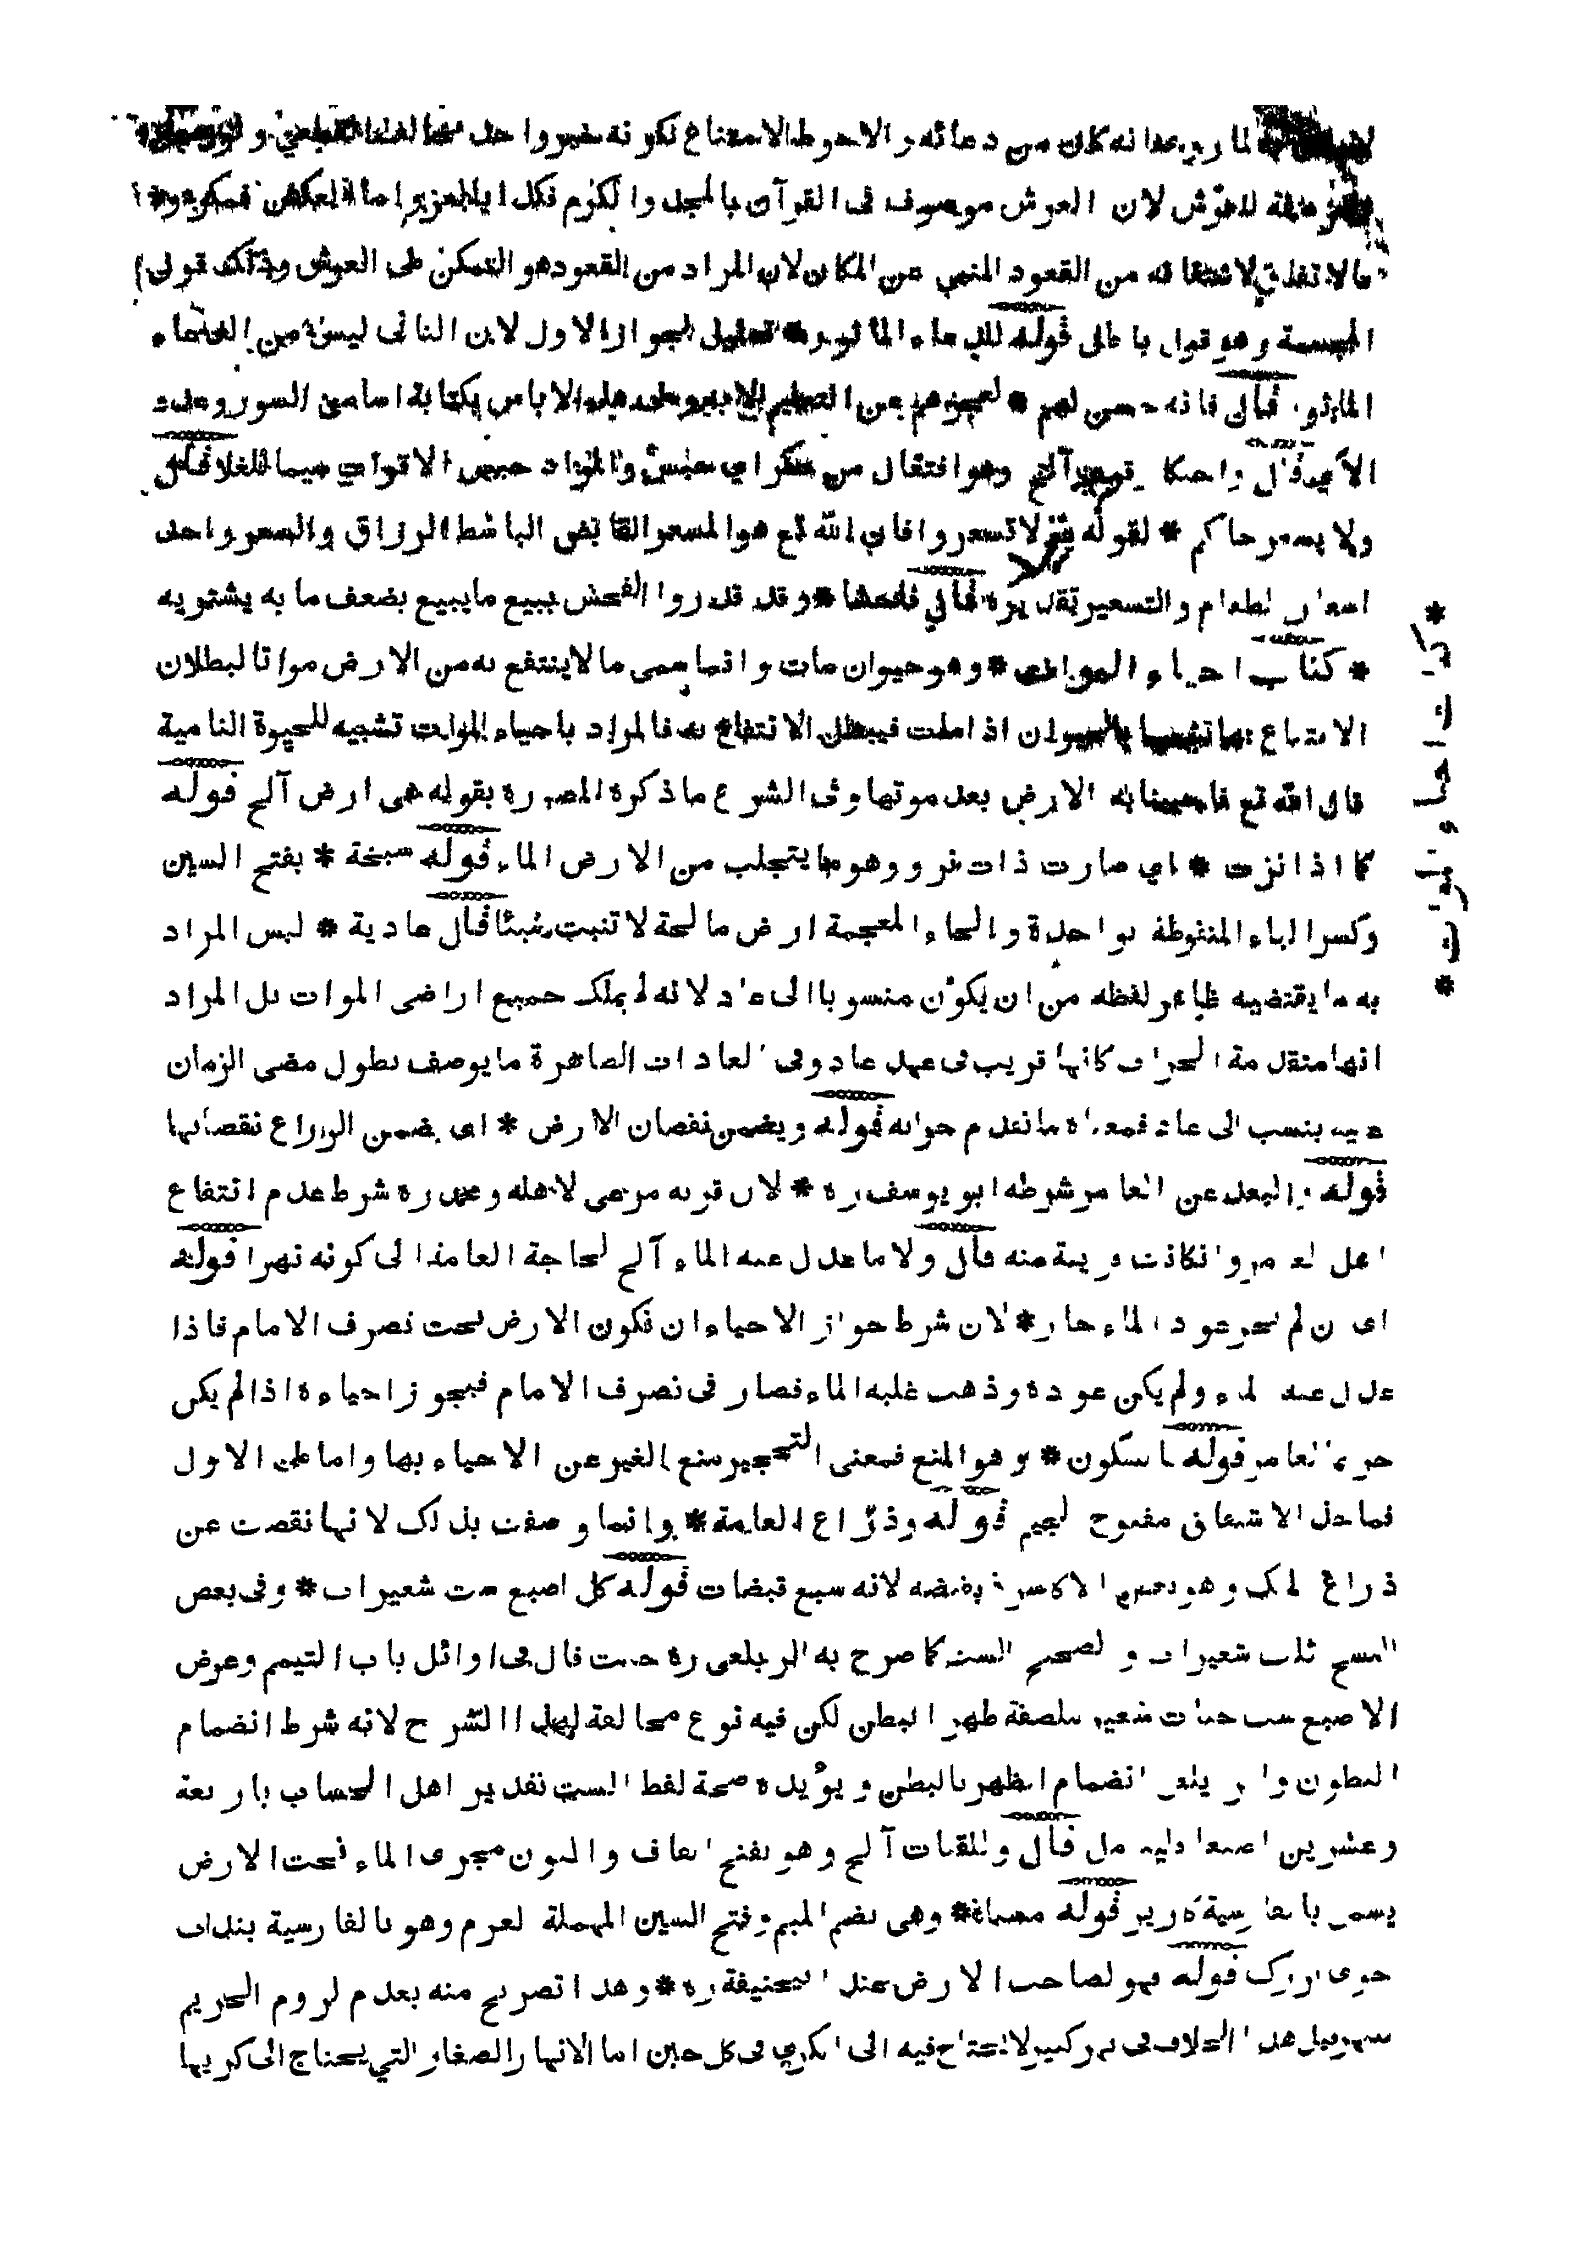 لما روي انه كان من دعائه والاحوط الامتناع لكونه خبر واحد
للعرش لان العرش موصوف فى القرآن بالمجد والكرم فكذا بالعز
من القعود المنبي عن المكان لان المراد من القعود هو التمكن على العرش وذلك قول
المجسمة وهو قول باطل قوله للدعاء المأثور * تعليل لجواز الاول لان الثانى ليس من
قال فانه حسن لهم * لعجزهم عن التعلم لا باس بكتابة اسامى السور وعدد
الآي قال واحتكار قوت آلخ وهو افتعال من حكر اي حبس والمراد حبس الاقوات للغلا قال
ولا يسعر حاكم * لقوله لا تسعروا فان الله تع هو المسعر القابض الباسط الرزاق والسعر واحد
اسعار الطعام والتسعير تقديره قال فاحشا * وقد قدروا الفحش ببيع ما يبيع بضعف ما به يشتريه
* كتاب احياء الموات * وهو حيوان مات وانما سمى ما لا ينتفع به من الارض مواتا لبطلان
الانتفاع بها تشبيها بالحيوان اذا مات فيبطل الانتفاع به فالمراد باحياء الموات تشبيه للحيوة النامية
قال الله تع فاحيينا به الارض بعد موتها وفى الشرع ما ذكره المص ره بقوله هى ارض آلخ قوله
كما اذا نزت * اي صارت ذات نز وهو ما يتجلب من الارض الماء قوله سبخة * بفتح السين
وكسر الباء المنقوطة بواحدة والخاء المعجمة ارض مالحة لا تنبت شيئا قال عادية * ليس المراد
به ما يقتضيه ظاهر لفظه من ان يكون منسوبا الى عاد لانه لم يملك جميع اراضى الموات بل المراد
انها متقدمة الخراب كانها قريب فى عهد عاد وفى العادات الظاهرة ما يوصف بطول مضى الزمان
عليه ينسب الى عاد فمعناه ما تقدم خرابه قوله ويضمن نقصان الارض * اى يضمن الزراع نقصانها
قوله والبعد عن العامر شرطه ابو يوسف ره * لان قربه مرعى لاهله ومحمد ره شرط عدم انتفاع
اهل العامر وان كانت قريبة منه قال ولا ما عدل عنه الماء آلخ لحاجة العامة الى كونه نهرا قوله
اى ان لم يجز عود الماء جاز * لان شرط جواز الاحياء ان تكون الارض تحت تصرف الامام فاذا
عدل عنه الماء ولم يكن عوده وذهب غلبه الماء فصار فى تصرف الامام فيجوز احياءه اذا لم يكن
حريما لعامر قوله بالسكون * وهو المنع فمعنى التحجير منع الغير عن الاحياء بها واما على الاول
فما خذ الاشتقاق مفتوح الجيم قوله وذراع العامة * وانما وصفت بذلك لانها نقصت عن
ذراع الملك وهو بعض الاكاسرة بقبضه لانه سبع قبضات قوله كل اصبع ست شعيرات * وفى بعض
النسخ ثلث شعيرات والصحيح الست كما صرح به الزيلعى ره حيث قال فى اوائل باب التيمم وعرض
الاصبع ست حبات شعير ملصقة ظهرا لبطن لكن فيه نوع مخالفة لهذا الشرح لانه شرط انضمام
البطون والزيلعى انضمام الظهر بالبطن ويؤيده صحة لفظ الست تقدير اهل الحساب باربعة
وعشرين اصبعا قال والقنات آلخ وهو بفتح القاف والنون مجرى الماء تحت الارض
يسمى بالفارسية كاريز قوله مسناة * وهى بضم الميم وفتح السين المهملة العرم وهو بالفارسية بنداب
جوى بزرك قوله فهو لصاحب الارض عند ابيحنيفة ره * وهذا تصريح منه بعدم لزوم الحريم
للنهر وقيل هذا الخلاف فى نهر كبير لا يحتاج فيه الى الكرى فى كل حين اما الانهار الصغار التي يحتاج الى كريها
* كتاب احياء الموات *